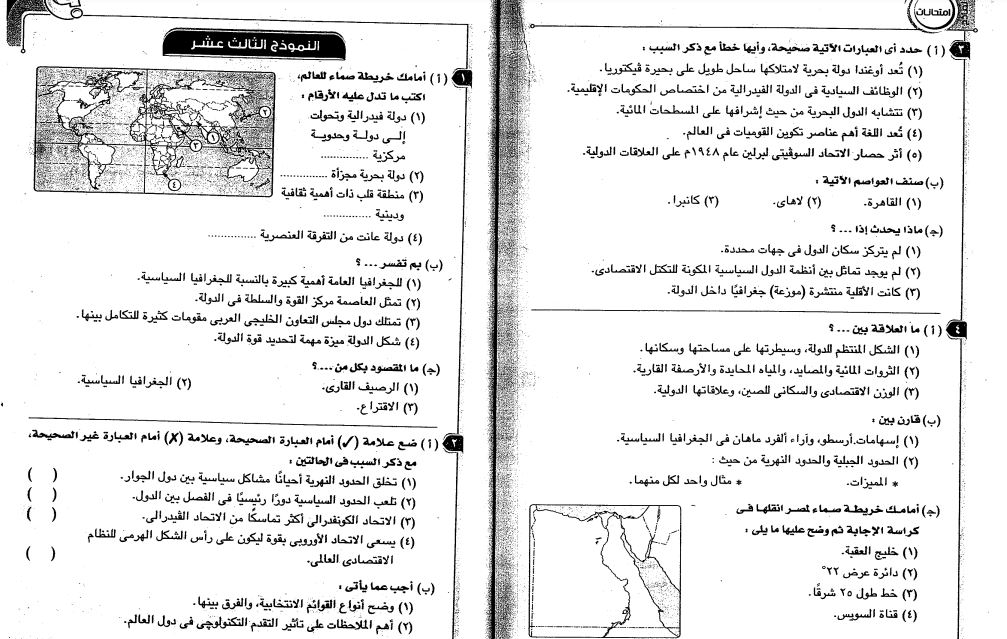 النموذج الثالث عشر
١ (أ) أمامك خريطة صماء للعالم،
اكتب ما تدل عليه الأرقام :
(١) دولة فيدرالية وتحولت
إلى دولة وحدوية
مركزية ...............
(٢) دولة بحرية مجزأة ...............
(٣) منطقة قلب ذات أهمية ثقافية
ودينية ...............
(٤) دولة عانت من التفرقة العنصرية ...............
١
٢
٣
٤
(ب) بم تفسر ... ؟
(١) للجغرافيا العامة أهمية كبيرة بالنسبة للجغرافيا السياسية.
(٢) تمثل العاصمة مركز القوة والسلطة فى الدولة.
(٣) تمتلك دول مجلس التعاون الخليجى العربى مقومات كثيرة للتكامل بينها.
(٤) شكل الدولة ميزة مهمة لتحديد قوة الدولة.
(ج) ما المقصود بكل من ... ؟
(١) الرصيف القارى. (٢) الجغرافيا السياسية.
(٣) الاقتراع.
٢ (أ) ضع علامة (✓) أمام العبارة الصحيحة، وعلامة (✗) أمام العبارة غير الصحيحة،
مع ذكر السبب فى الحالتين :
(١) تخلق الحدود النهرية أحيانًا مشاكل سياسية بين دول الجوار. ( )
(٢) تلعب الحدود السياسية دورًا رئيسيًا فى الفصل بين الدول. ( )
(٣) الاتحاد الكونفدرالى أكثر تماسكًا من الاتحاد الڤيدرالى. ( )
(٤) يسعى الاتحاد الأوروبى بقوة ليكون على رأس الشكل الهرمى للنظام
الاقتصادى العالمى. ( )
(ب) أجب عما يأتى :
(١) وضح أنواع القوائم الانتخابية، والفرق بينها.
(٢) أهم الملاحظات على تأثير التقدم التكنولوچى فى دول العالم.
امتحانات
٣ (أ) حدد أى العبارات الآتية صحيحة، وأيها خطأ مع ذكر السبب :
(١) تُعد أوغندا دولة بحرية لامتلاكها ساحل طويل على بحيرة ڤيكتوريا.
(٢) الوظائف السيادية فى الدولة الفيدرالية من اختصاص الحكومات الإقليمية.
(٣) تتشابه الدول البحرية من حيث إشرافها على المسطحات المائية.
(٤) تُعد اللغة أهم عناصر تكوين القوميات فى العالم.
(٥) أثر حصار الاتحاد السوڤيتى لبرلين عام ١٩٤٨م على العلاقات الدولية.
(ب) صنف العواصم الآتية :
(١) القاهرة. (٢) لاهاى. (٣) كانبرا.
(ج) ماذا يحدث إذا ... ؟
(١) لم يتركز سكان الدول فى جهات محددة.
(٢) لم يوجد تماثل بين أنظمة الدول السياسية المكونة للتكتل الاقتصادى.
(٣) كانت الأقلية منتشرة (موزعة) جغرافيًا داخل الدولة.
٤ (أ) ما العلاقة بين ... ؟
(١) الشكل المنتظم للدولة، وسيطرتها على مساحتها وسكانها.
(٢) الثروات المائية والمصايد، والمياه المحايدة والأرصفة القارية.
(٣) الوزن الاقتصادى والسكانى للصين، وعلاقاتها الدولية.
(ب) قارن بين :
(١) إسهامات أرسطو، وآراء ألفرد ماهان فى الجغرافيا السياسية.
(٢) الحدود الجبلية والحدود النهرية من حيث :
* المميزات. * مثال واحد لكل منهما.
(ج) أمامك خريطة صماء لمصر انقلها فى
كراسة الإجابة ثم وضح عليها ما يلى :
(١) خليج العقبة.
(٢) دائرة عرض ٢٢°
(٣) خط طول ٢٥ شرقًا.
(٤) قناة السويس.